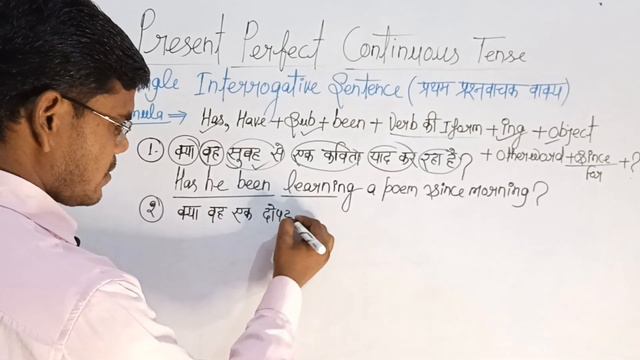 Present Perfect Continuous Tense
Interrogative Sentence (प्रथम प्रश्नवाचक वाक्य)
⇒ Has, Have + Sub + been + Verb की I form + ing + object
+ Otherword + since/for + ?
1. क्या वह सुबह से एक कविता याद कर रहा है?
Has he been learning a poem since morning?
२ क्या वह एक दोपह